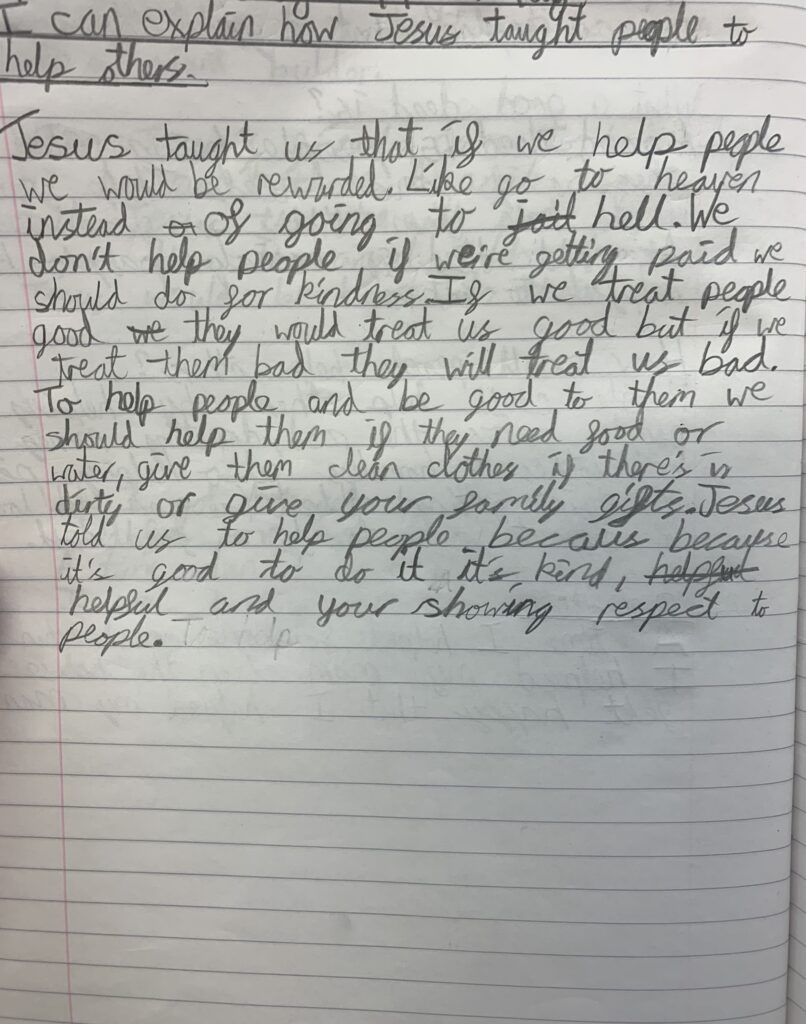 I can explain how Jesus taught people to
help others.
Jesus taught us that if we help people
we would be rewarded. Like go to heaven
instead or Of going to jail hell. We
don't help people if we're getting paid we
should do for kindness. If we treat people
good we they would treat us good but if we
treat them bad they will treat us bad.
To help people and be good to them we
should help them if they need food or
water, give them clean clothes if there's is
dirty or give your family gifts. Jesus
told us to help people becaus because
it's good to do it it's kind, helpful
helpful and your showing respect to
people. To help